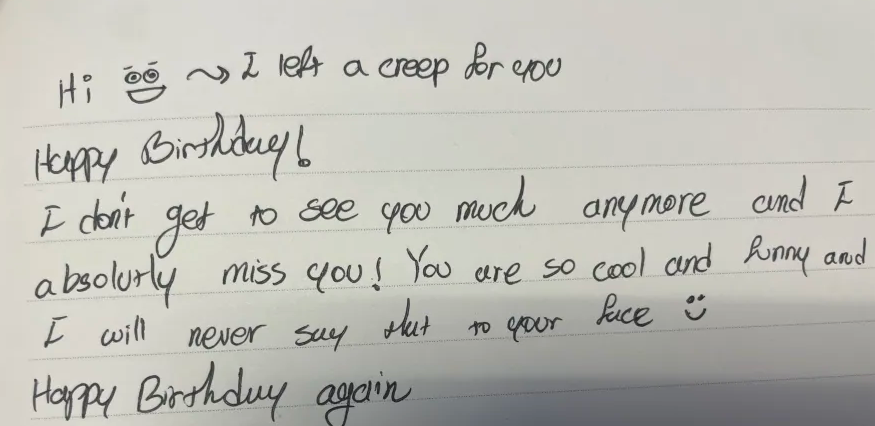 Hi ~> I left a creep for you
Happy Birthday!
I don't get to see you much anymore and I
absolutly miss you! You are so cool and funny and
I will never say that to your face
Happy Birthday again